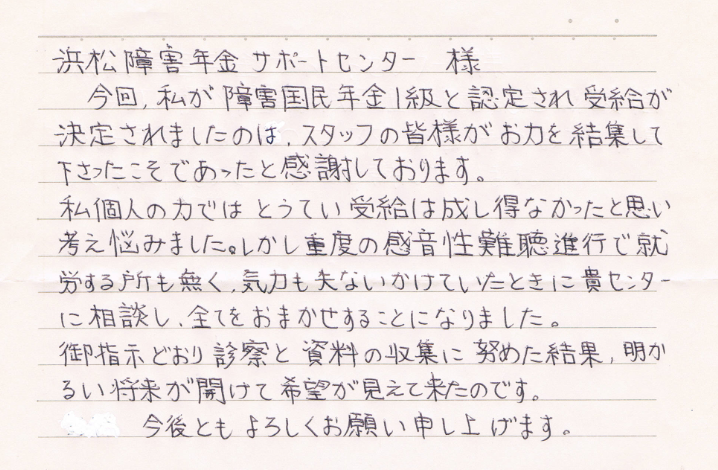 浜松障害年金サポートセンター 様
今回，私が障害国民年金1級と認定され受給が
決定されましたのは，スタッフの皆様がお力を結集して
下さったこそであったと感謝しております。
私個人の力ではとうてい受給は成し得なかったと思い
考え悩みました。しかし重度の感音性難聴進行で就
労する所も無く，気力も失ないかけていたときに貴センター
に相談し，全てをおまかせすることになりました。
御指示どおり診察と資料の収集に努めた結果，明か
るい将来が開けて希望が見えて来たのです。
今後ともよろしくお願い申し上げます。